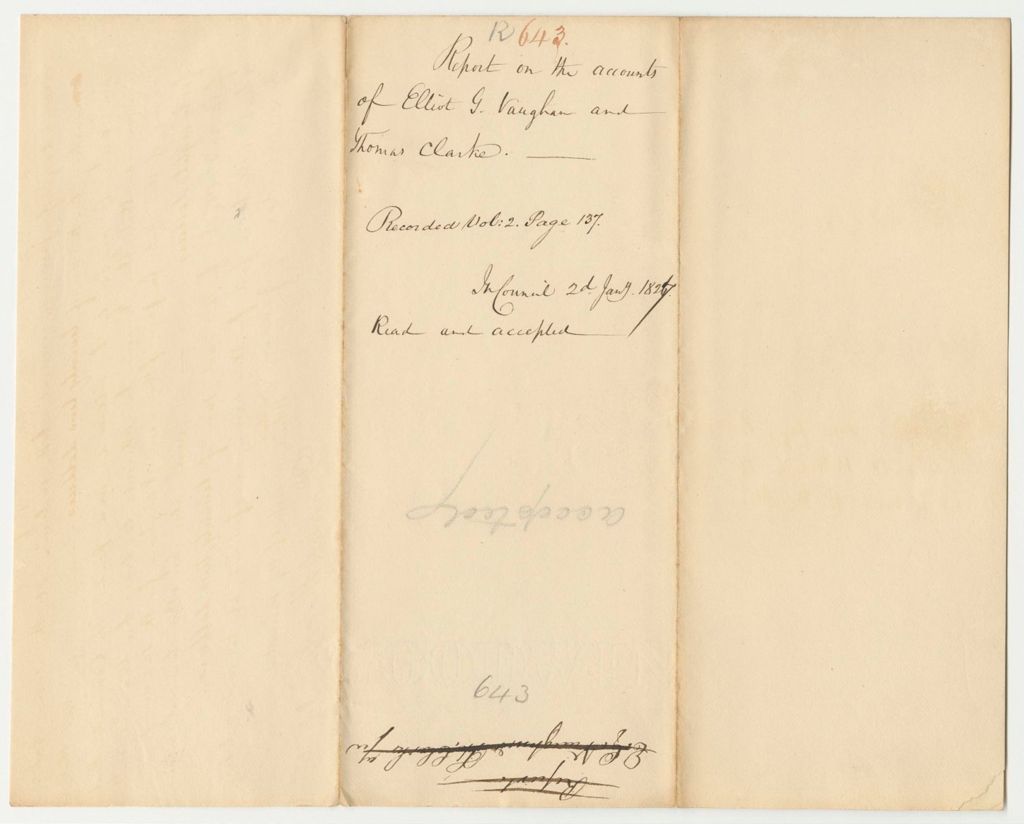 R 643.
Report on the accounts
of Elliot G. Vaughan and
Thomas Clarke.
Recorded Vol: 2. Page 137.
In Council 2d Jany. 1827.
Read and accepted
accepted
643
Report